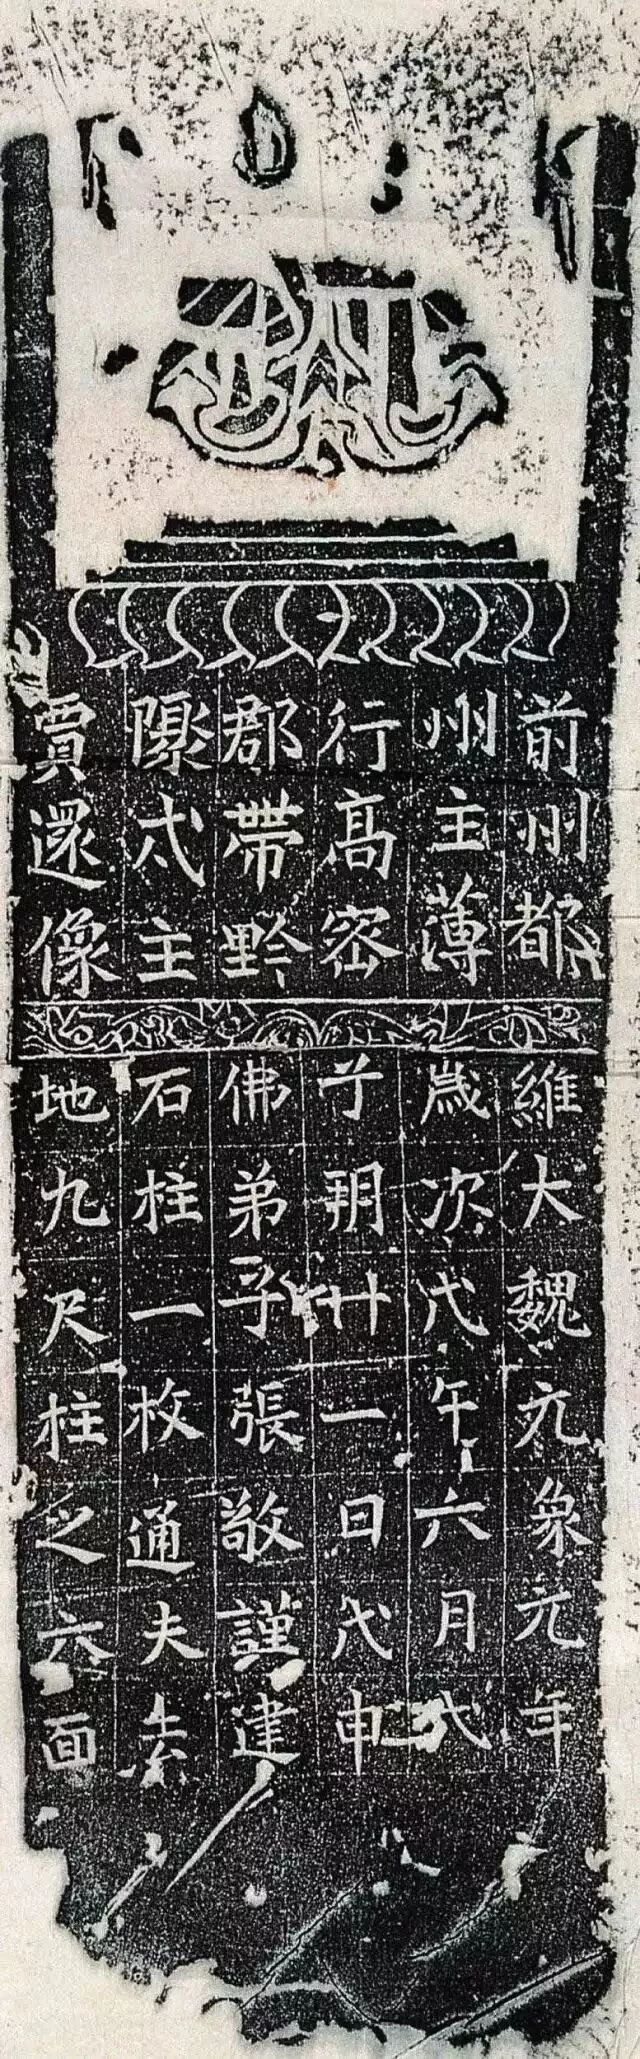 前州都
州主薄
行高密
郡帶黔
陬弍主
賈還像
維大魏元象元年
歲次戊午六月戊
子朔廿一日戊申
佛弟子張敬謹建
石柱一枚通夫素
地九尺柱之六面